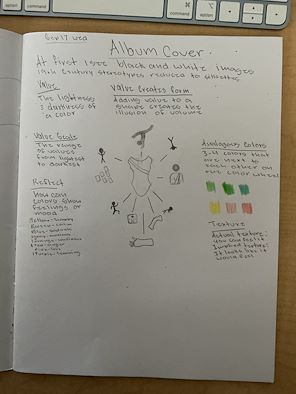 command
option
command
Sep 17 wed
Album Cover
At first I see black and white images
19th century stereotypes reduced to
Value
The lightness
& darkness of
a color
Value creates form
Adding value to a
shape creates the
illusion of volume
Value Scale
The range
of values
from lightest
to darkest
Analogous Colors
3-4 colors that
are next to
each other on
the color wheel
Reflect
how can
colors show
feelings or
mood
Texture
Actual texture:
you can feel it
Implied texture:
It looks like it
would feel